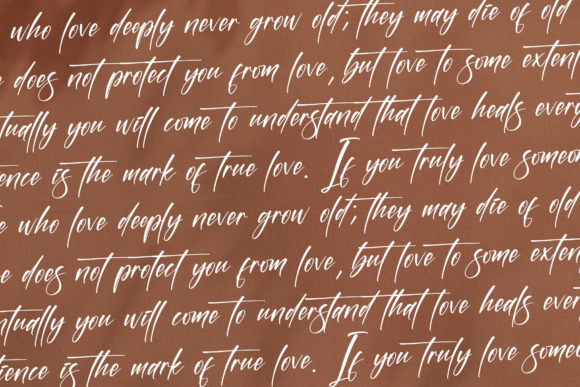 who love deeply never grow old; they may die of old
e does not protect you from love, but love to some extent
tually you will come to understand that love heals ever
ience is the mark of true love. If you truly love someo
e who love deeply never grow old; they may die of old
e does not protect you from love, but love to some exten
ntually you will come to understand that love heals ever
tience is the mark of true love. If you truly love someo